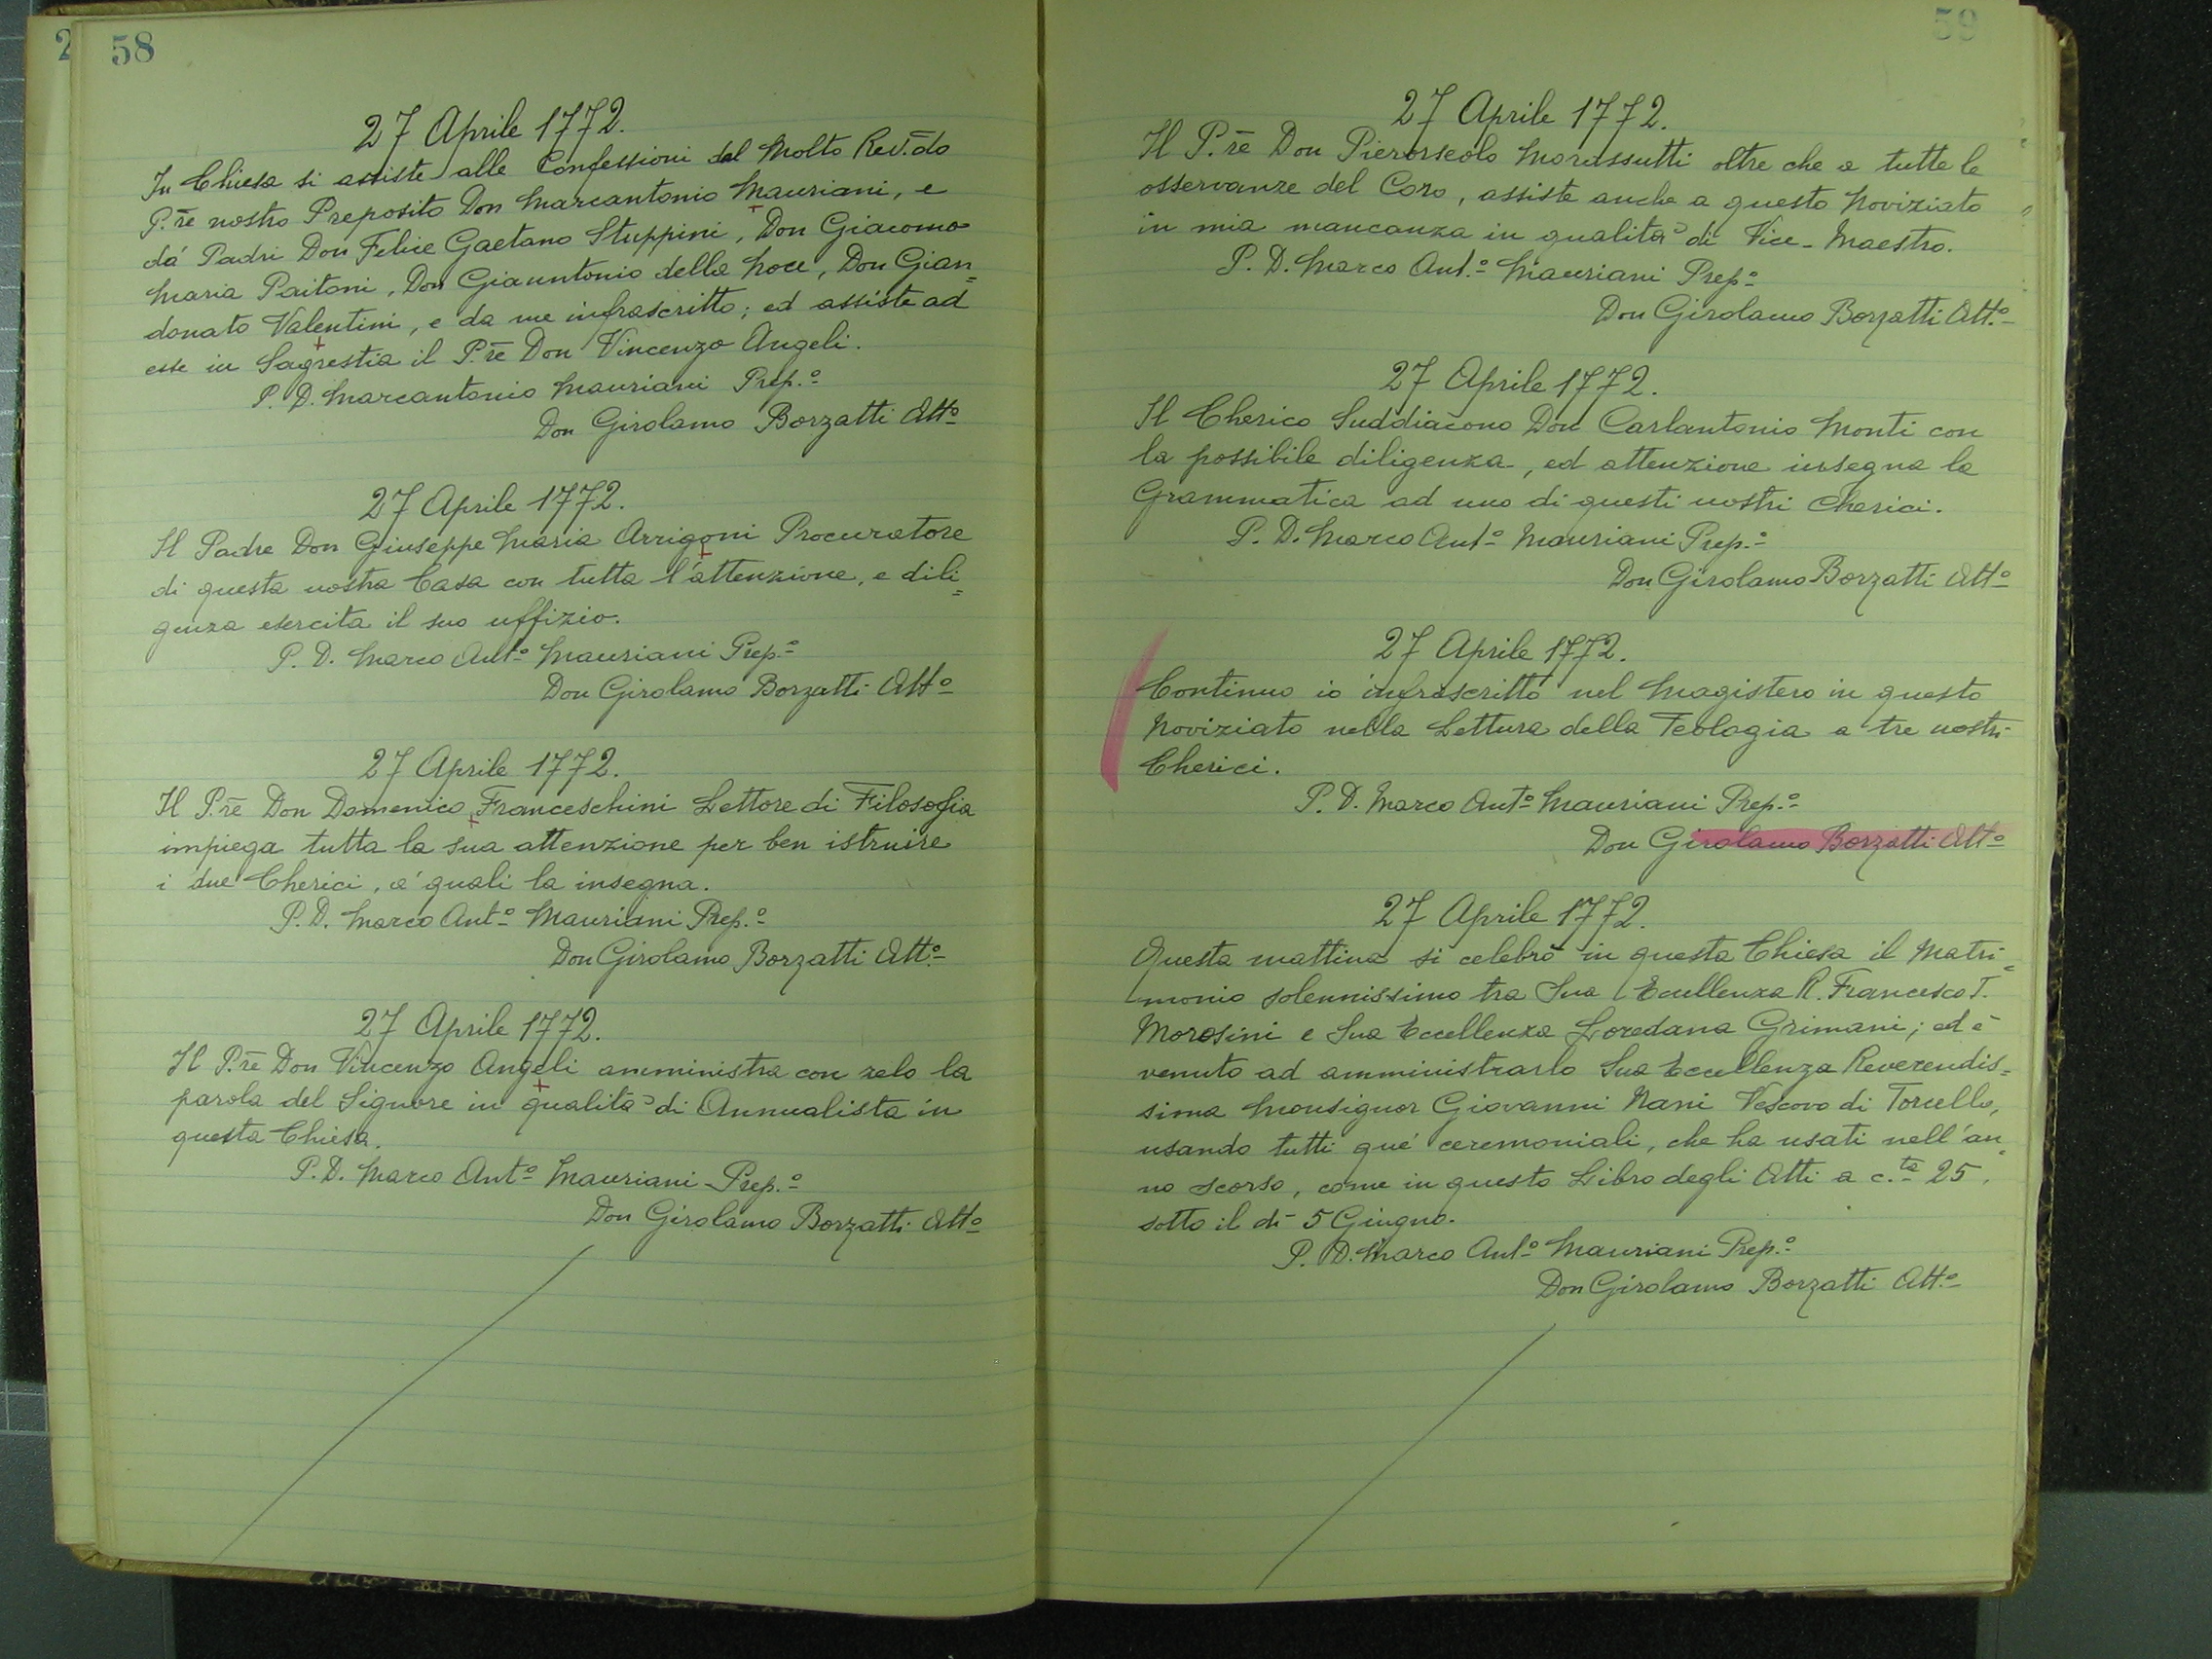 2
58
27 Aprile 1772.
In Chiesa si assiste alle Confessioni del Molto Rev.do
P.re nostro Preposito Don Marcantonio Mauriani, e
dá Padri Don Felice Gaetano Stuppini, Don Giacomo
Maria Paitoni, Don Gianntonio della Noce, Don Gian=
donato Valentini, e da me infrascritto; ed assiste ad
esse in Sagrestia il P.re Don Vincenzo Angeli.
P. D. Marcantonio Mauriani Prep.o
Don Girolamo Borzatti Att.o
27 Aprile 1772.
Il Padre Don Giuseppe Maria Arrigoni Procuratore
di questa nostra Casa con tutta l'attenzione, e dili=
genza esercita il suo uffizio.
P. D. Marco Ant.o Mauriani Prep.o
Don Girolamo Borzatti Att.o
27 Aprile 1772.
Il P.re Don Domenico Franceschini Lettore di Filosofia
impiega tutta la sua attenzione per ben istruire
i due Cherici, a' quali la insegna.
P. D. Marco Ant.o Mauriani Prep.o
Don Girolamo Borzatti Att.o
27 Aprile 1772.
Il P.re Don Vincenzo Angeli amministra con zelo la
parola del Signore in qualità di Annualista in
questa Chiesa.
P. D. Marco Ant.o Mauriani Prep.o
Don Girolamo Borzatti Att.o
59
27 Aprile 1772.
Il P.re Don Pierorseolo Morassutti oltre che a tutte le
osservanze del Coro, assiste anche a questo Noviziato
in mia mancanza in qualità di Vice-Maestro.
P. D. Marco Ant.o Mauriani Prep.o
Don Girolamo Borzatti Att.o
27 Aprile 1772.
Il Cherico Suddiacono Don Carlantonio Monti con
la possibile diligenza, ed attenzione insegna la
Grammatica ad uno di questi nostri Cherici.
P. D. Marco Ant.o Mauriani Prep.o
Don Girolamo Borzatti Att.o
27 Aprile 1772.
Continuo io infrascritto nel Magistero in questo
Noviziato nella Lettura della Teologia a tre nostri
Cherici.
P. D. Marco Ant.o Mauriani Prep.o
Don Girolamo Borzatti Att.o
27 Aprile 1772.
Questa mattina si celebrò in questa Chiesa il Matri=
monio solennissimo tra Sua Eccellenza R. Francesco T.
Morosini e Sua Eccellenza Loredana Grimani; ed è
venuto ad amministrarlo Sua Eccellenza Reverendis=
sima Monsignor Giovanni Nani Vescovo di Torcello,
usando tutti que' ceremoniali, che ha usati nell'an=
no scorso, come in questo Libro degli Atti a c.ta 25,
sotto il dì 5 Giugno.
P. D. Marco Ant.o Mauriani Prep.o
Don Girolamo Borzatti Att.o